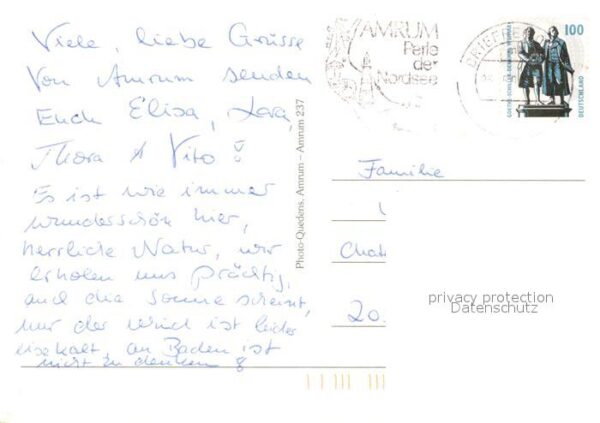 Viele, liebe Grüsse
von Amrum senden
Euch Elisa, Lara,
Thora & Vito !
Es ist wie immer
wunderschön hier,
herrliche Natur, wir
erholen uns prächtig,
auch die Sonne scheint,
nur der Wind ist leider
eiskalt, an Baden ist
nicht zu denken
Photo-Quedens, Amrum – Amrum 237
AMRUM
Perle
der
Nordsee
100
GOETHE-SCHILLER-DENKMAL WEIMAR
DEUTSCHLAND
Familie
Chat
20.
privacy protection
Datenschutz